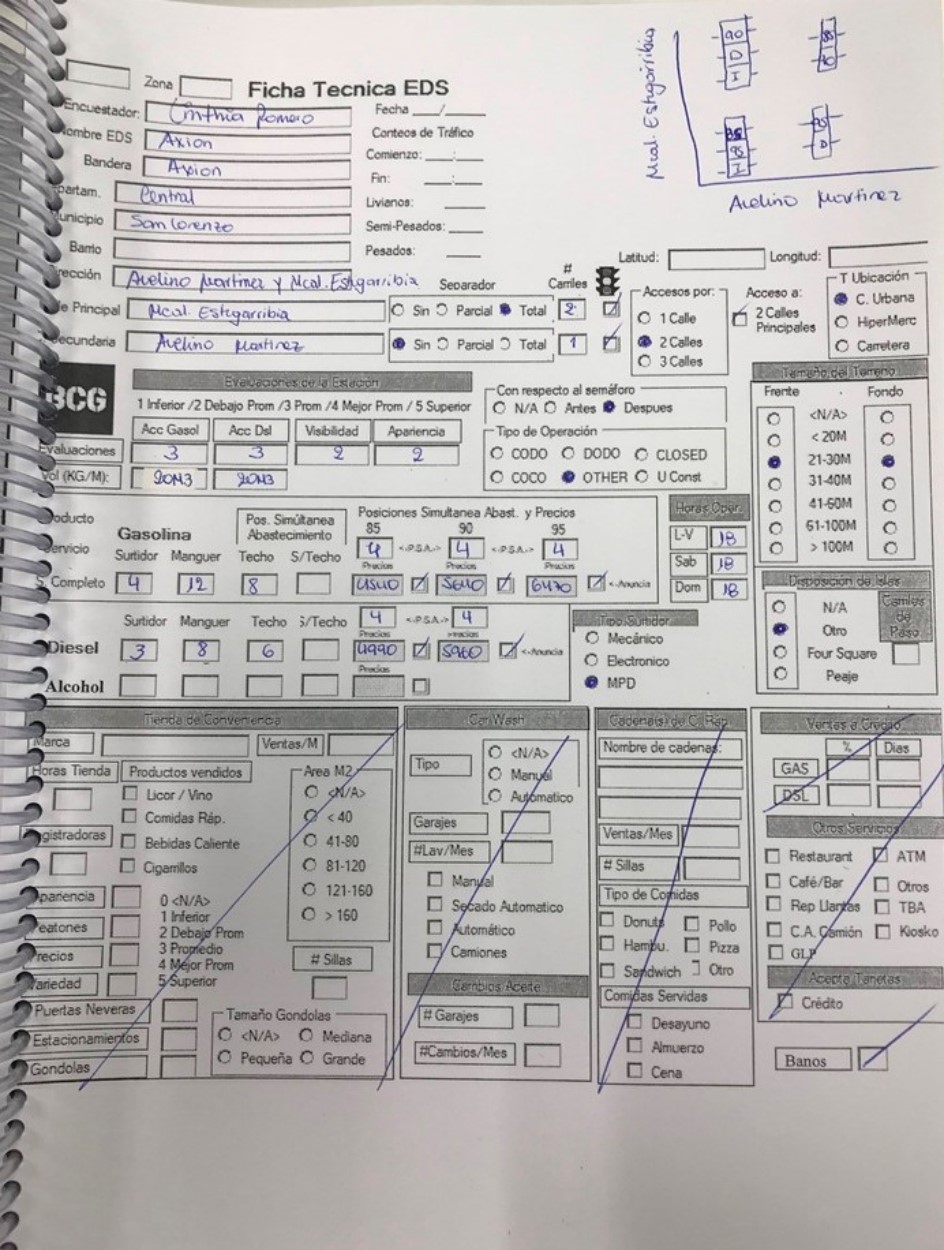 Mcal. Estigarribia
90
D
I
85
90
85
95
I
95
D
Avelino Martinez
Zona
Ficha Tecnica EDS
Encuestador: Cinthia Romero
Fecha ___/___
Nombre EDS Axion
Conteos de Tráfico
Bandera Axion
Comienzo: ___:___
Fin: ___:___
partam. Central
Livianos: ___
unicipio San Lorenzo
Semi-Pesados: ___
Barrio
Pesados: ___
Latitud: Longitud:
rección Avelino Martinez y Mcal. Estigarribia
Separador # Carriles
e Principal Mcal. Estigarribia Sin Parcial Total 2
ecundaria Avelino Martinez Sin Parcial Total 1
Accesos por:
1 Calle
2 Calles
3 Calles
Acceso a:
2 Calles Principales
T Ubicación
C. Urbana
HiperMerc
Carretera
BCG
Evaluaciones de la Estación
1 Inferior /2 Debajo Prom /3 Prom /4 Mejor Prom / 5 Superior
Acc Gasol Acc Dsl Visibilidad Apariencia
Evaluaciones 3 3 2 2
Vol (KG/M): 20M3 20M3
Con respecto al semáforo
N/A Antes Despues
Tipo de Operación
CODO DODO CLOSED
COCO OTHER U Const
Tamaño del Terreno
Frente Fondo
<N/A>
< 20M
21-30M
31-40M
41-60M
61-100M
> 100M
oducto
ervicio
Gasolina
Pos. Simúltanea Abastecimiento
Posiciones Simultanea Abast. y Precios
85 90 95
Surtidor Manguer Techo S/Techo
4 <-P.S.A.-> 4 <-P.S.A.-> 4
Precios Precios Precios
S. Completo 4 12 8 4540 5640 6470 <-Anuncia
Horas Oper.
L-V 18
Sab 18
Dom 18
Surtidor Manguer Techo S/Techo
4 <-P.S.A.-> 4
Precios Precios
Diesel 3 8 6 4990 5960 <-Anuncia
Precios
Alcohol
Tipo Surtidor
Mecánico
Electronico
MPD
Disposición de Islas
N/A
Otro
Four Square
Peaje
Carriles de Paso
Tienda de Conveniencia
Marca Ventas/M
Horas Tienda Productos vendidos
Licor / Vino
Comidas Ráp.
Bebidas Caliente
Cigarrilos
gistradoras
Area M2
<N/A>
< 40
41-80
81-120
121-160
> 160
pariencia
eatones
recios
ariedad
0 <N/A>
1 Inferior
2 Debajo Prom
3 Promedio
4 Mejor Prom
5 Superior
# Sillas
Puertas Neveras
Estacionamientos
Gondolas
Tamaño Gondolas
<N/A> Mediana
Pequeña Grande
Car Wash
Tipo
<N/A>
Manual
Automatico
Garajes
#Lav/Mes
Manual
Secado Automatico
Automático
Camiones
Cambios Aceite
# Garajes
#Cambios/Mes
Cadena(s de C. Rap
Nombre de cadenas:
Ventas/Mes
# Sillas
Tipo de Comidas
Donuts Pollo
Hambu. Pizza
Sandwich Otro
Comidas Servidas
Desayuno
Almuerzo
Cena
Ventas a Credito
% Dias
GAS
DSL
Otros Servicios
Restaurant ATM
Café/Bar Otros
Rep Llantas TBA
C.A. Camión Kiosko
GLP
Acepta Tarjetas
Crédito
Banos